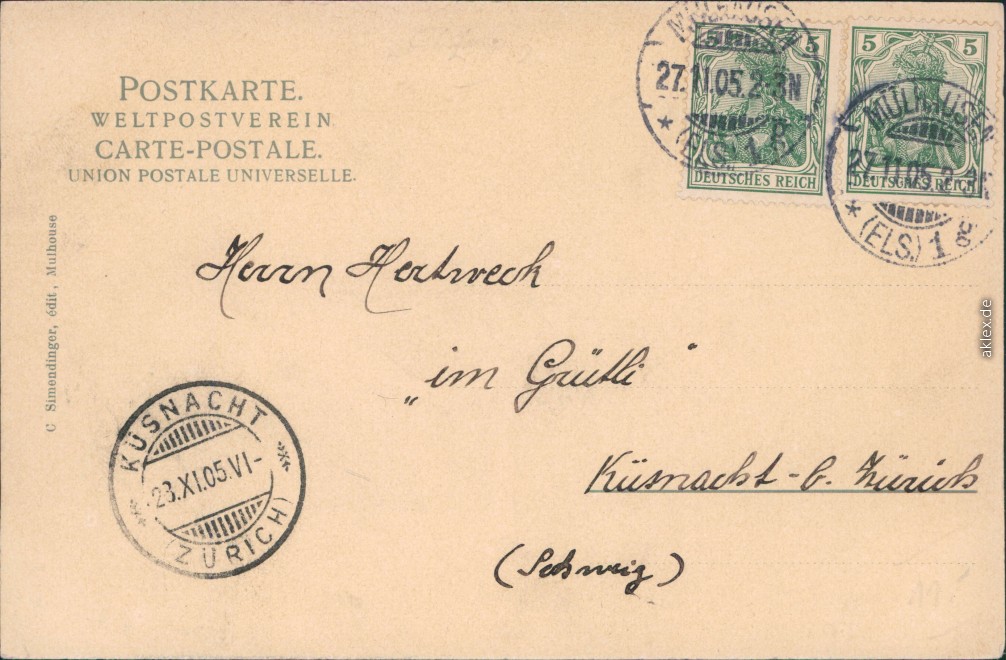 POSTKARTE.
WELTPOSTVEREIN
CARTE-POSTALE.
UNION POSTALE UNIVERSELLE.
MÜLHAUSEN
27.11.05.2-3N
* (ELS.) 1 g
5
DEUTSCHES REICH
MÜLHAUSEN
27.11.05.2-3N
* (ELS.) 1 g
5 5
DEUTSCHES REICH
C Simendinger, édit, Mulhouse
Herrn Hertweck
„im Grütli"
Küsnacht - b. Zürich
(Schweiz)
KÜSNACHT
28.XI.05.VI-
(ZÜRICH)
aklex.de